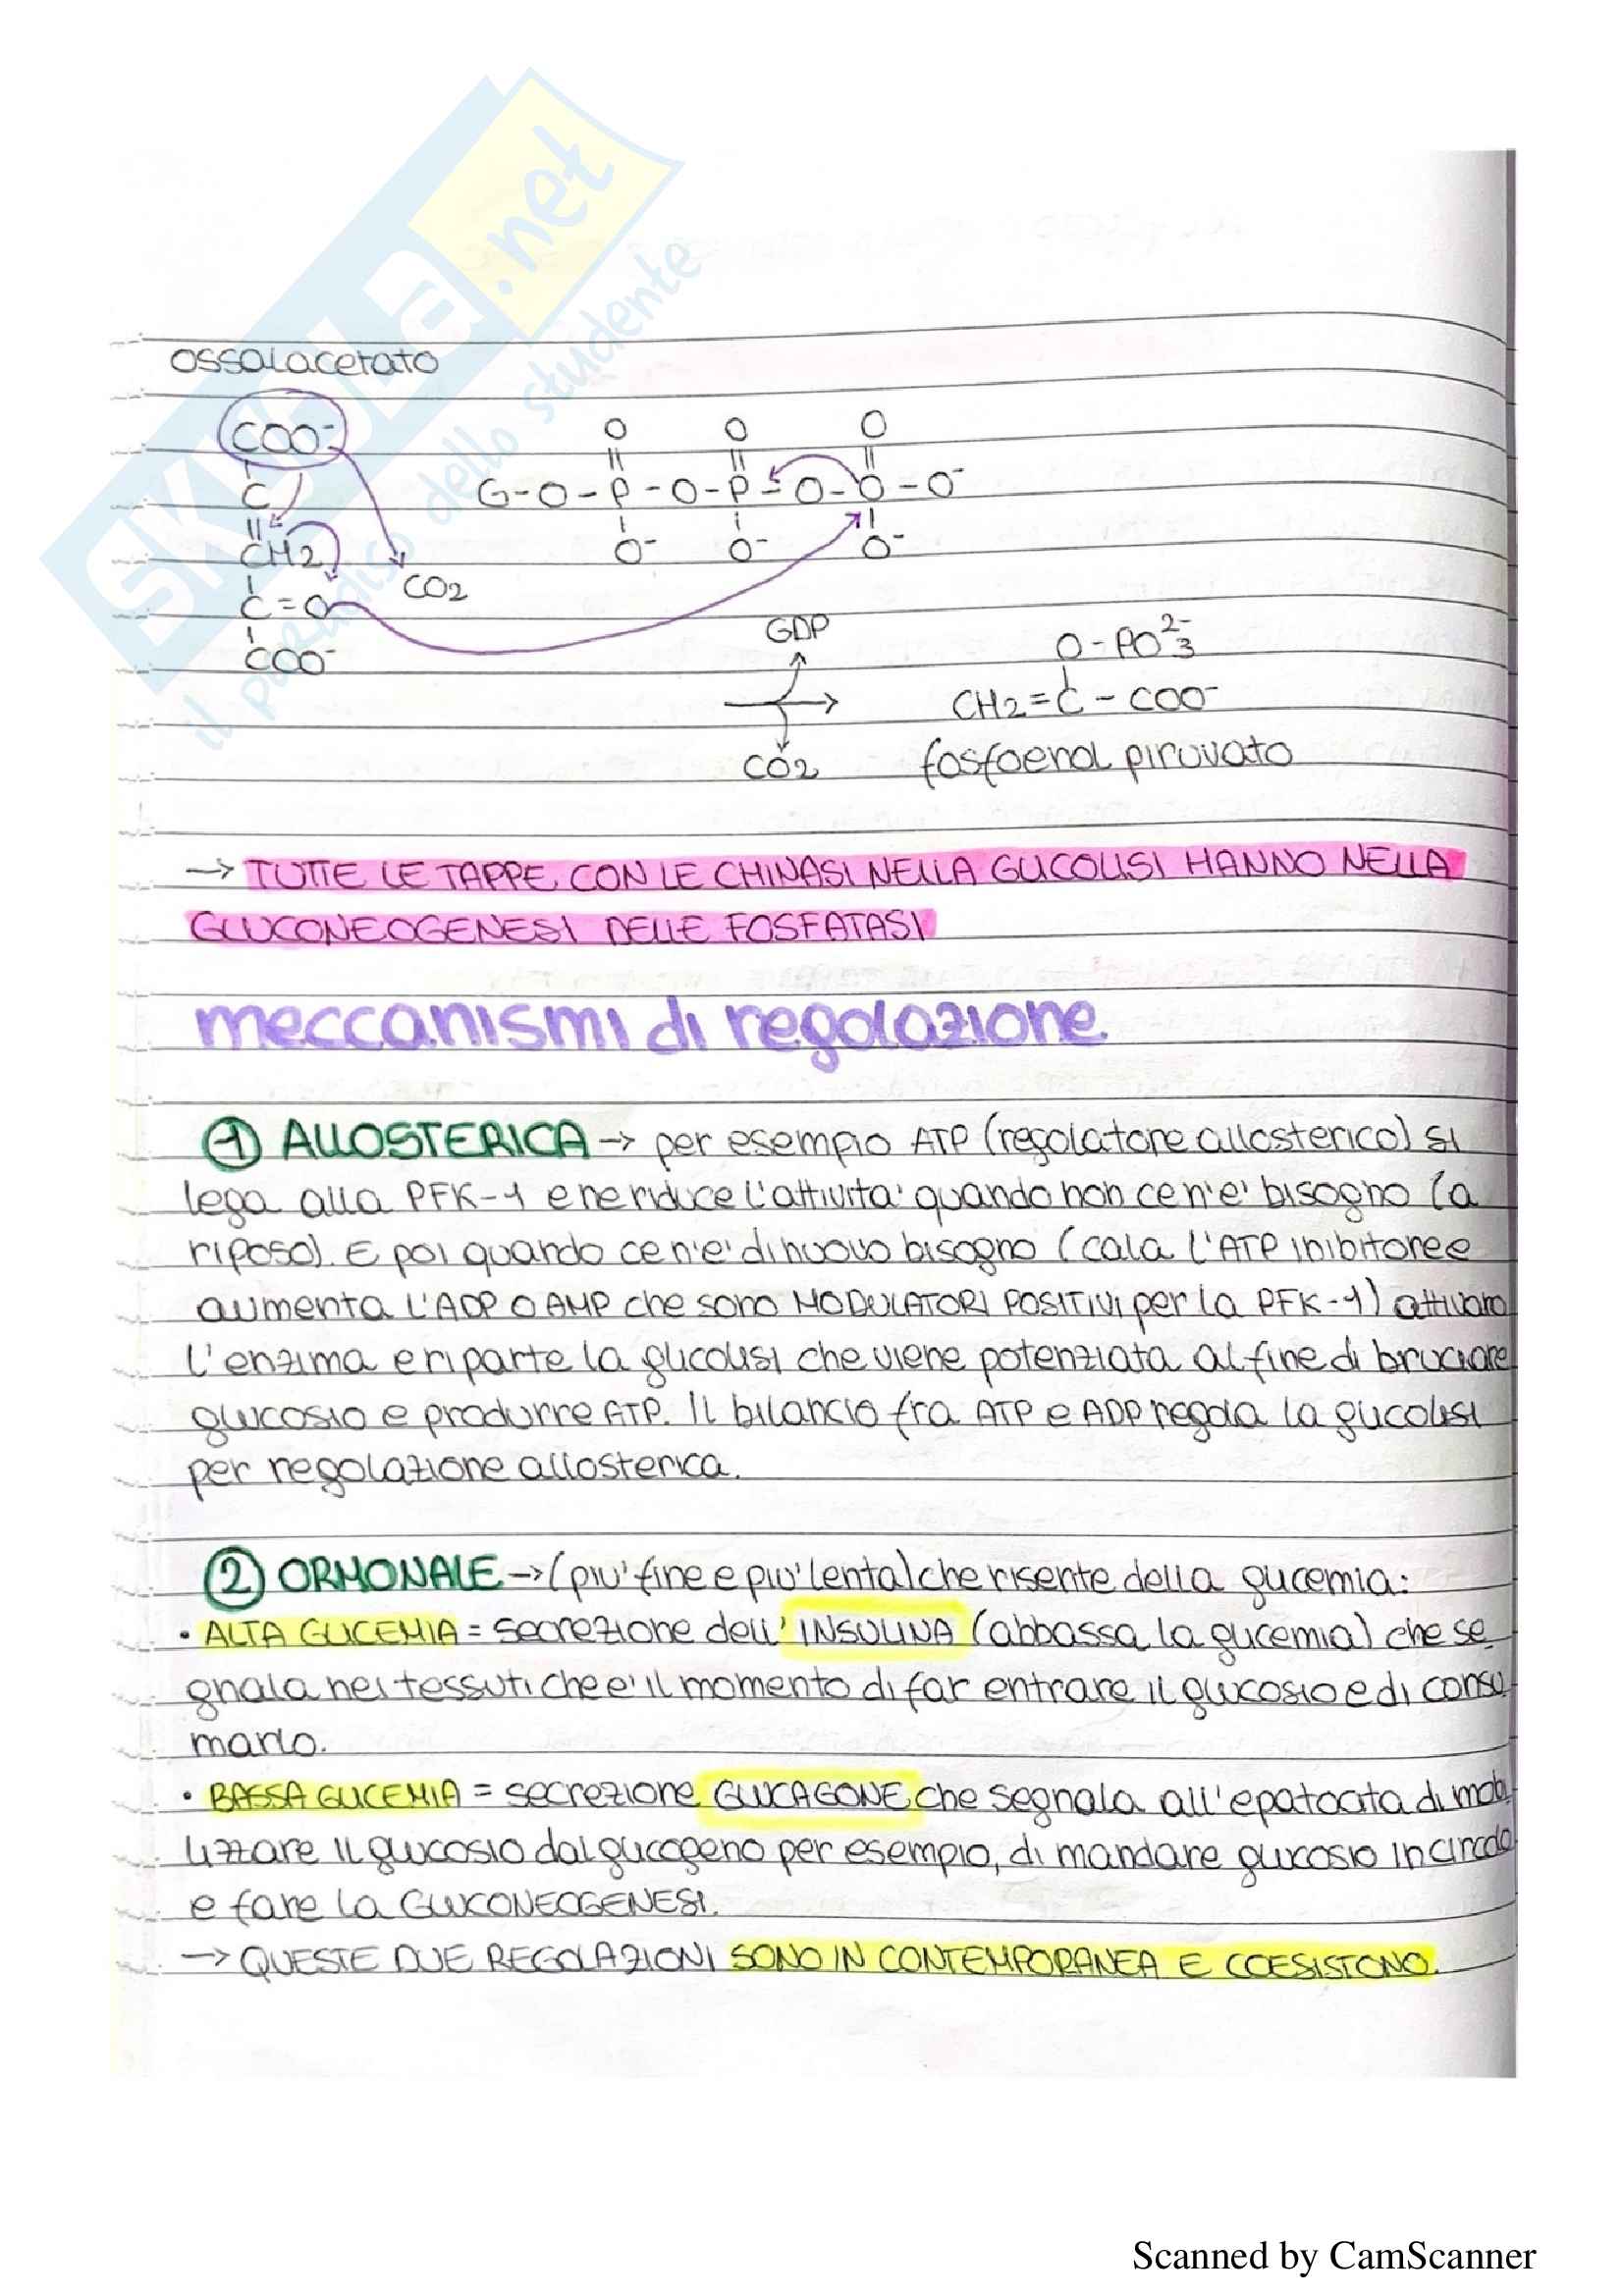 SKUOLA.net
il paradiso dello studente
ossalacetato
COO⁻
C
CH2
C=O
COO⁻
CO2
O O O
G-O-P-O-P-O-O-O⁻
O⁻ O⁻ O⁻
GDP
CO2
O-PO₃²⁻
CH2=C-COO⁻
fosfoenol piruvato
→ TUTTE LE TAPPE CON LE CHINASI NELLA GLICOLISI HANNO NELLA
GLUCONEOGENESI DELLE FOSFATASI
meccanismi di regolazione.
① ALLOSTERICA → per esempio ATP (regolatore allosterico) si
lega alla PFK-1 e ne riduce l'attivita' quando non ce n'e' bisogno (a
riposo). E poi quando ce n'e' di nuovo bisogno (cala l'ATP inibitore e
aumenta l'ADP o AMP che sono MODULATORI POSITIVI per la PFK-1) attivano
l'enzima e riparte la glicolisi che viene potenziata al fine di bruciare
glucosio e produrre ATP. Il bilancio fra ATP e ADP regola la glicolisi
per regolazione allosterica.
② ORMONALE → (piu' fine e piu' lenta) che risente della glicemia:
• ALTA GLICEMIA = secrezione dell' INSULINA (abbassa la glicemia) che se
gnala nei tessuti che e' il momento di far entrare il glucosio e di consu
marlo.
• BASSA GLICEMIA = secrezione GLUCAGONE che segnala all'epatocita di mobi
lizzare il glucosio dal glicogeno per esempio, di mandare glucosio in circolo
e fare la GLUCONEOGENESI.
→ QUESTE DUE REGOLAZIONI SONO IN CONTEMPORANEA E COESISTONO.
Scanned by CamScanner